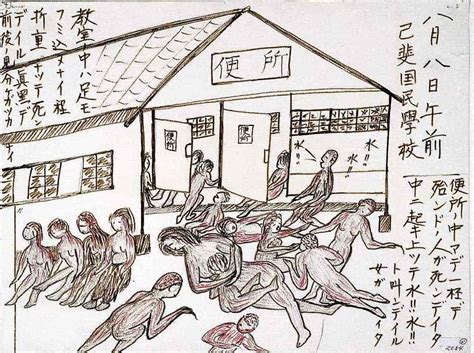 八月八日午前
己斐国民學校
便所
便所
便所
水!!
水!!
便所ノ中マデ一杯デ
殆ンドノ人が死ンデイタ
中ニ起キ上ッテ水!!水!!
ト叫ンデイル
女ガイタ
教室ノ中ハ足モ
フミ込メナイ程
折重ナッテ死
デイル真黒デ
前後ノ見分ガツカナイ